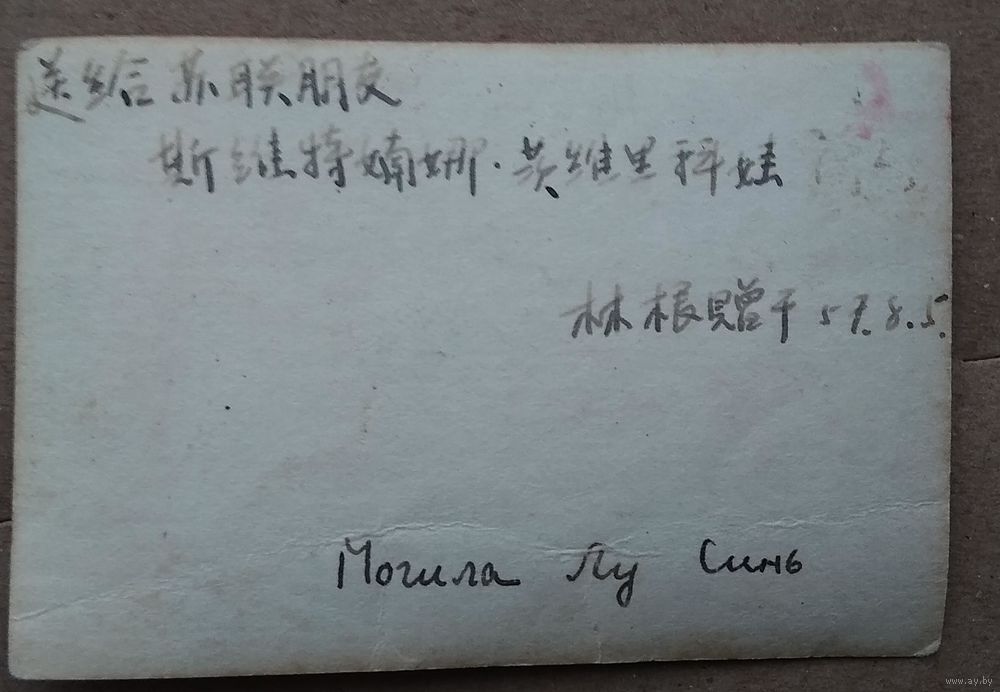 送给苏联朋友
斯维特婻娜·英维里科娃
林根赠于57.8.5.
Могила Лу Синь
www.ay.by